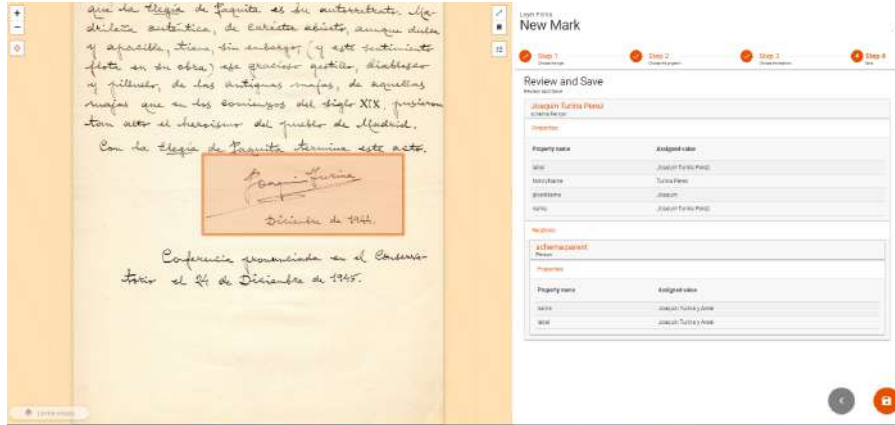 que la Elegía de Paquita es su autorretrato. Ma-
drileña auténtica, de carácter abierto, aunque dulce
y apacible, tiene, sin embargo, (y este sentimiento
flota en su obra) ese gracioso gestillo, diablesco
y pilluelo, de las antiguas majas, de aquellas
majas que en los comienzos del siglo XIX, pusieron
tan alto el heroísmo del pueblo de Madrid.
Con la Elegía de Paquita termina este acto.
Joaquín Turina
Diciembre de 1944.
Conferencia pronunciada en el Conserva-
torio el 24 de Diciembre de 1945.
New Mark
Step 1
Step 2
Step 3
Step 4
Review and Save
Review and Save
Joaquín Turina Perez
schema:Person
Properties
Property name Assigned value
label Joaquín Turina Perez
familyName Turina Perez
givenName Joaquín
name Joaquín Turina Perez
Relations
schema:parent
Person
Properties
Property name Assigned value
name Joaquín Turina y Areal
label Joaquín Turina y Areal